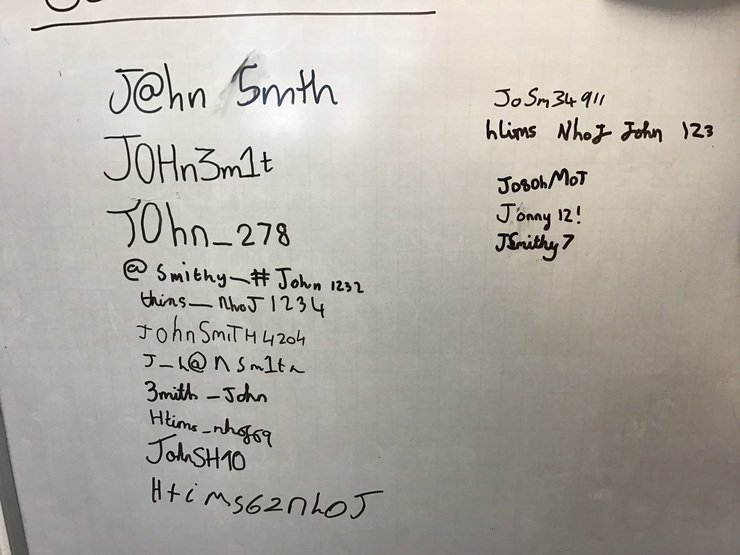 J@hn Smth
JOHn3m1t
JOhn_278
@ Smithy_# John 1232
thims_nhoJ1234
JohnSmiTH4204
J_h@n Sm1th
3mith_John
Htims_nhoJ69
JohnSH10
HtiMS62nhOJ
JoSm34911
hlims NhoJ John 123
JosohMoT
Jonny12!
JSmithy7